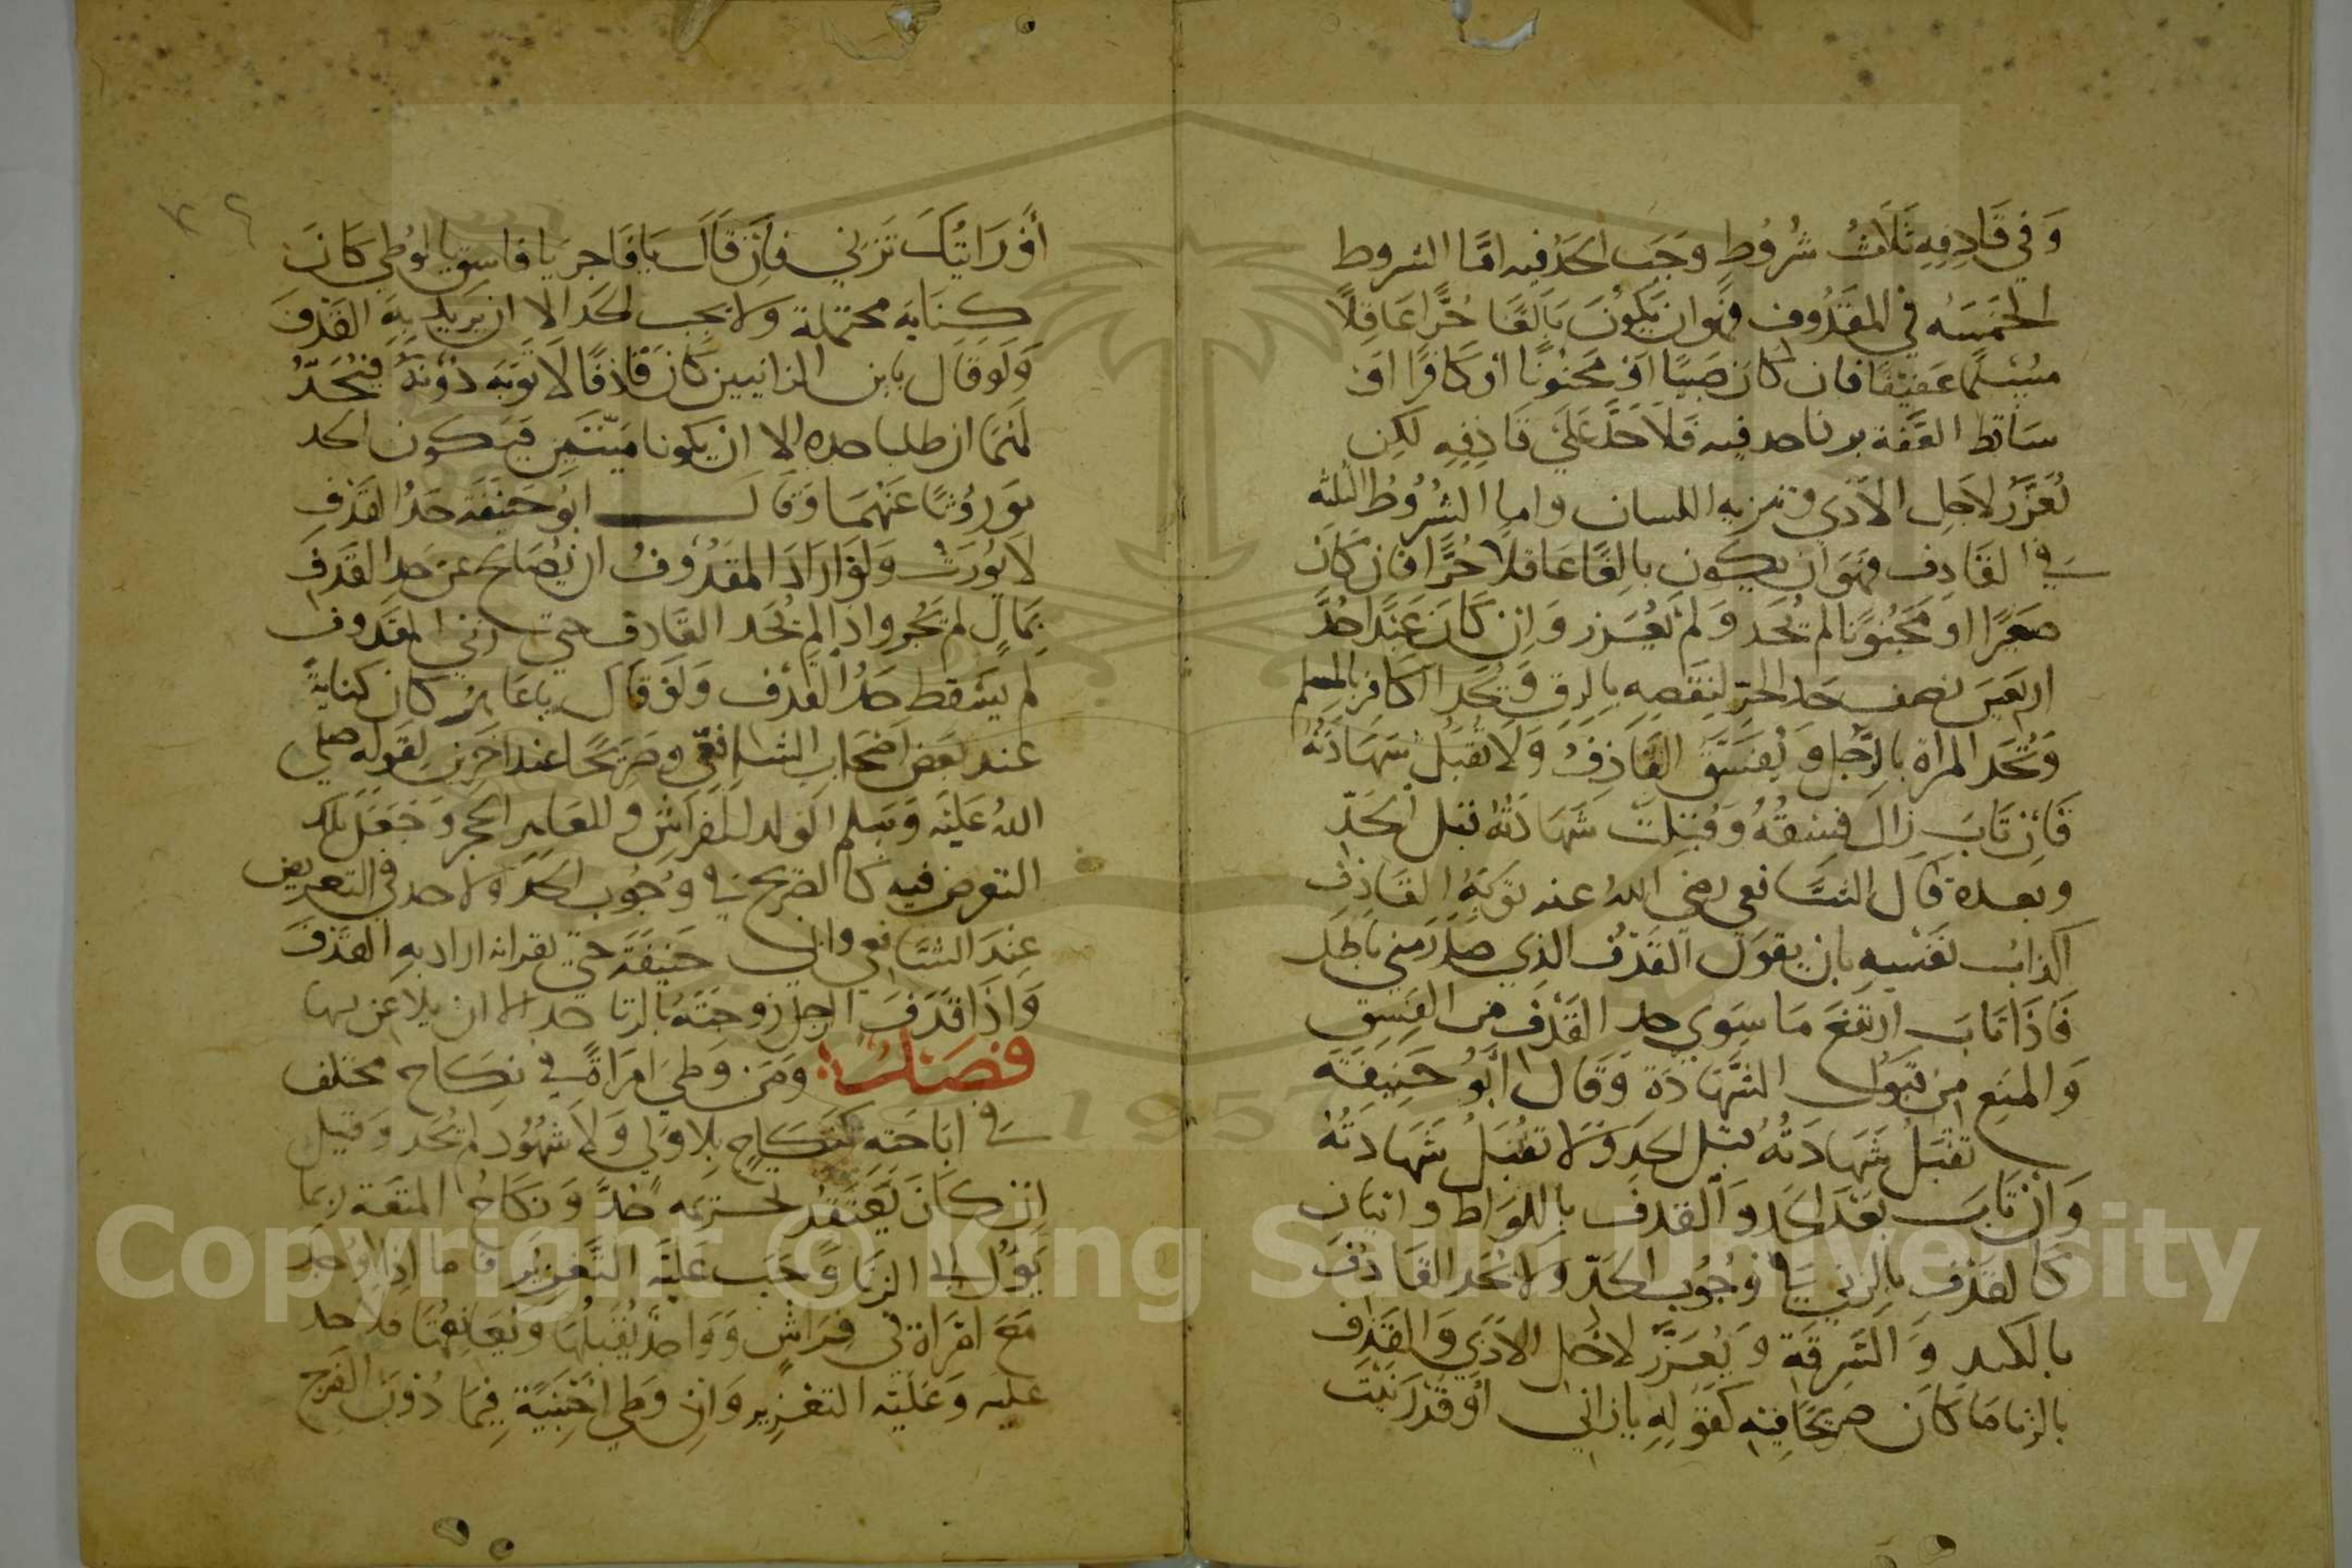 وَفي قَاذِفِهِ ثَلَاثُ شُرُوطٍ وَجَبَ الحَدُ فيه امَّا الشروط
الخَمسَهُ في المَقذُوف فهوان يَكوُنَ بَالغًا حُرًّا عَاقِلًا
مسُلمًا عَفيفًا فان كان صَبيًا اَوْ مَجنُونًا اوْ كَافرًا اوْ
سَاقط العِفَّة بزناحد فيه فَلَا حَدَّ عَلَي قَاذِفِهِ لكِن
يُعَزَّرُ لاَجل الاَذي وتنزيه اللسان واما الشُرُوُط الثلثه
في القَاذِف فهَوَان يكون بَالِغًا عَاقلاً حُرًّا فان كَانَ
صَغيرًا او مَجنُونًا لم يُحَد وَلم يُعَزر وَان كَانَ عَبدًا حُدَّ
اربَعينَ نصف حَد الحُرّ لنَقصِهِ بالرِق وَيُحَد الكافر بالمسلم
وَتُحَد المراة بالرَّجل وَيُفَسَّقُ القَاذِفُ وَلَا تُقبَلُ شَهَادَتُه
فَاِن تَابَ زال فسقُهُ وَقُبلَت شَهَادَتُهُ قبل الحَدِّ
وبعده قال الشَّافعي رضي اللهُ عنه تَوبَةُ القَاذِف
اكذابُ نَفسِهِ بان يقول القَذف الذي صَدَرَ مني باطِل
فَاذَا تابَ ارتفَعَ مَا سِوَي حد القَذف من الفِسق
وَالمنع من قبَول الشَّهَادَة وَقَال اَبُو حَنيفَة
تقبَلُ شَهَادَتُهُ قبل الحَد وَلا تقبَلُ شَهَادَتُهُ
وَان تَابَ بَعدَ الحَد وَالقذف باللوَاط واتيان
كَالقَذف بالزني في وُجُوب الحَدّ وَلا يُحَد القَاذف
بالكفر وَالسَّرِقَةِ وَيُعَزَّر لاجل الاَذَي وَالقَذف
بالزنا مَا كَان صَريحًا فيهِ كقَولِهِ يازاني اَوقد زنَيتَ
أوْ رَايتُكَ تَزني فإن قَالَ يَا فَاجر يا فاسق يا لوُطي كانَ
كنَايَه محتملة وَلا يجب الحَد الا ان يرَيد بِهِ القَذف
وَلَو قَال يابن الزانيين كان قَاذِفًا لاَبَوَيه دُونَهُ فيُحَدُّ
لهمَا ان طلبا حده الا ان يكونا مَيّتَين فيكون الحد
مَورُوُثًا عَنهمَا وَقَال ابَوُ حَنيفَة حَدُّ القَذفِ
لَا يُورَثُ وَلَو اَرَادَ المقذُوفُ ان يُصَالح عن حَد القَذفِ
بمَالٍ لم يَجُز واذا لم يُحَد القَاذف حتي زني المقذوف
لم يَسقط حَدُّ القَذف وَلَو قَال ياعَاهِرُ كان كنايةً
عند بَعض اَصْحَاب الشافعي وصَرَيحًا عند اخَرين لقَوله صلي
اللهُ عَليَه وَسلم الوَلد للفِرَاش وللعَاهِر الحجر وَجَعَلَ مَالك
التعرض فيه كالصّريح في وُجُوب الحَد وَلا حد في التعريض
عِندَ الشَّافعي وابي حَنيفَةَ حتي يقرانه اراد بهِ القذف
وَاذَا قَذَفَ الرجل زوجَتَهُ بالزنا حد الا ان يلاعن بها
فصل وَمَن وَطيَ امرَاةً في نكَاح مختلف
في ابَاحَته كنكَاحٍ بِلا وَلي وَلا شهُوُد لم يُحَد وَقيل
ان كانَ يَعتَقدُ تحريمَه حُدَّ وَنكَاحُ المتعَة رُبمَا
يَؤُل الي الزنَا وَجَبَ عَليَه التَّعزير فاما اذا وُجدَ
مَعَ امَرَاة في فرَاش وَاحدٍ يُقَبِلهَا وَيُعَانِقهَا فلاحد
عليه وَعَلَيَه التعزير وَان وَطي اجنبَيَّة فيمَا دُوْنَ الفَرج